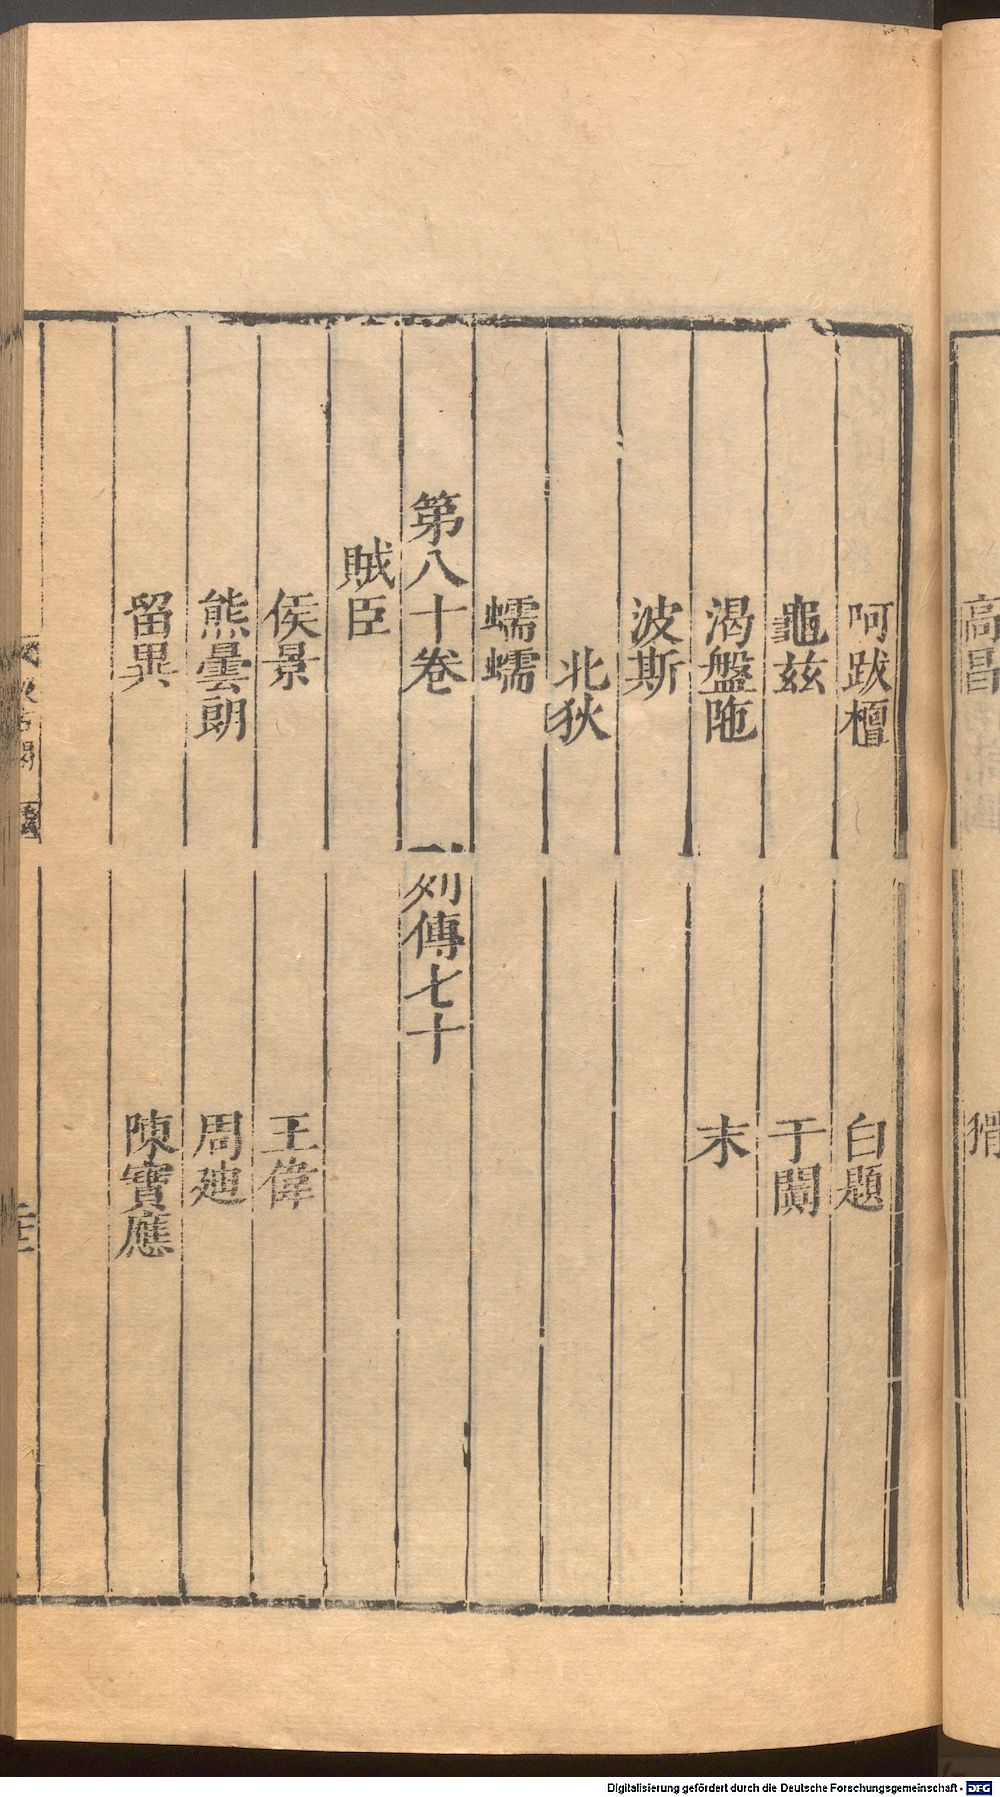 呵跋檀　白題
龜玆　于闐
渴盤陁　末
波斯
北狄
蠕蠕
第八十卷　列傳七十
賊臣
侯景　王偉
熊曇朗　周迪
留異　陳寶應
高昌
Digitalisierung gefördert durch die Deutsche Forschungsgemeinschaft - DFG